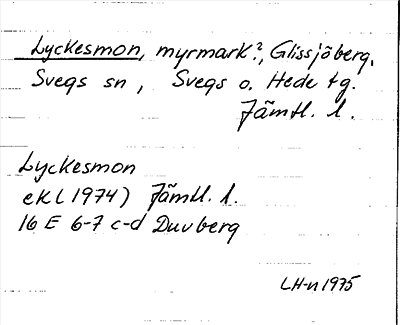 Lyckesmon, myrmark?, Glissjöberg,
Svegs sn, Svegs o. Hede tg.
Jämtl. l.
Lyckesmon
ekl (1974) Jämtl. l.
16 E 6-7 c-d Duvberg
LH-n 1975